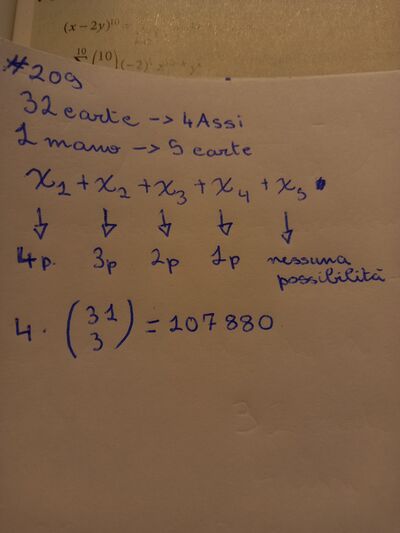 (x-2y)¹⁰ =
#209
32 carte -> 4 Assi
1 mano -> 5 carte
x₁ + x₂ + x₃ + x₄ + x₅
4p. 3p 2p 1p nessuna
possibilità
4 · (31 3) = 107 880